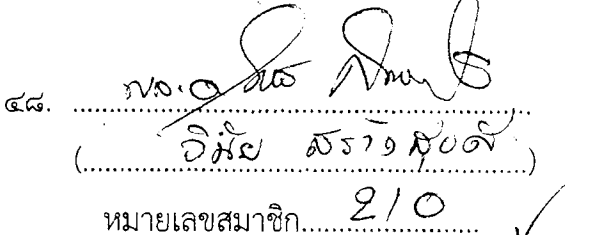 ๔๘.
(วินัย สร้างสุขดี)
หมายเลขสมาชิก 210